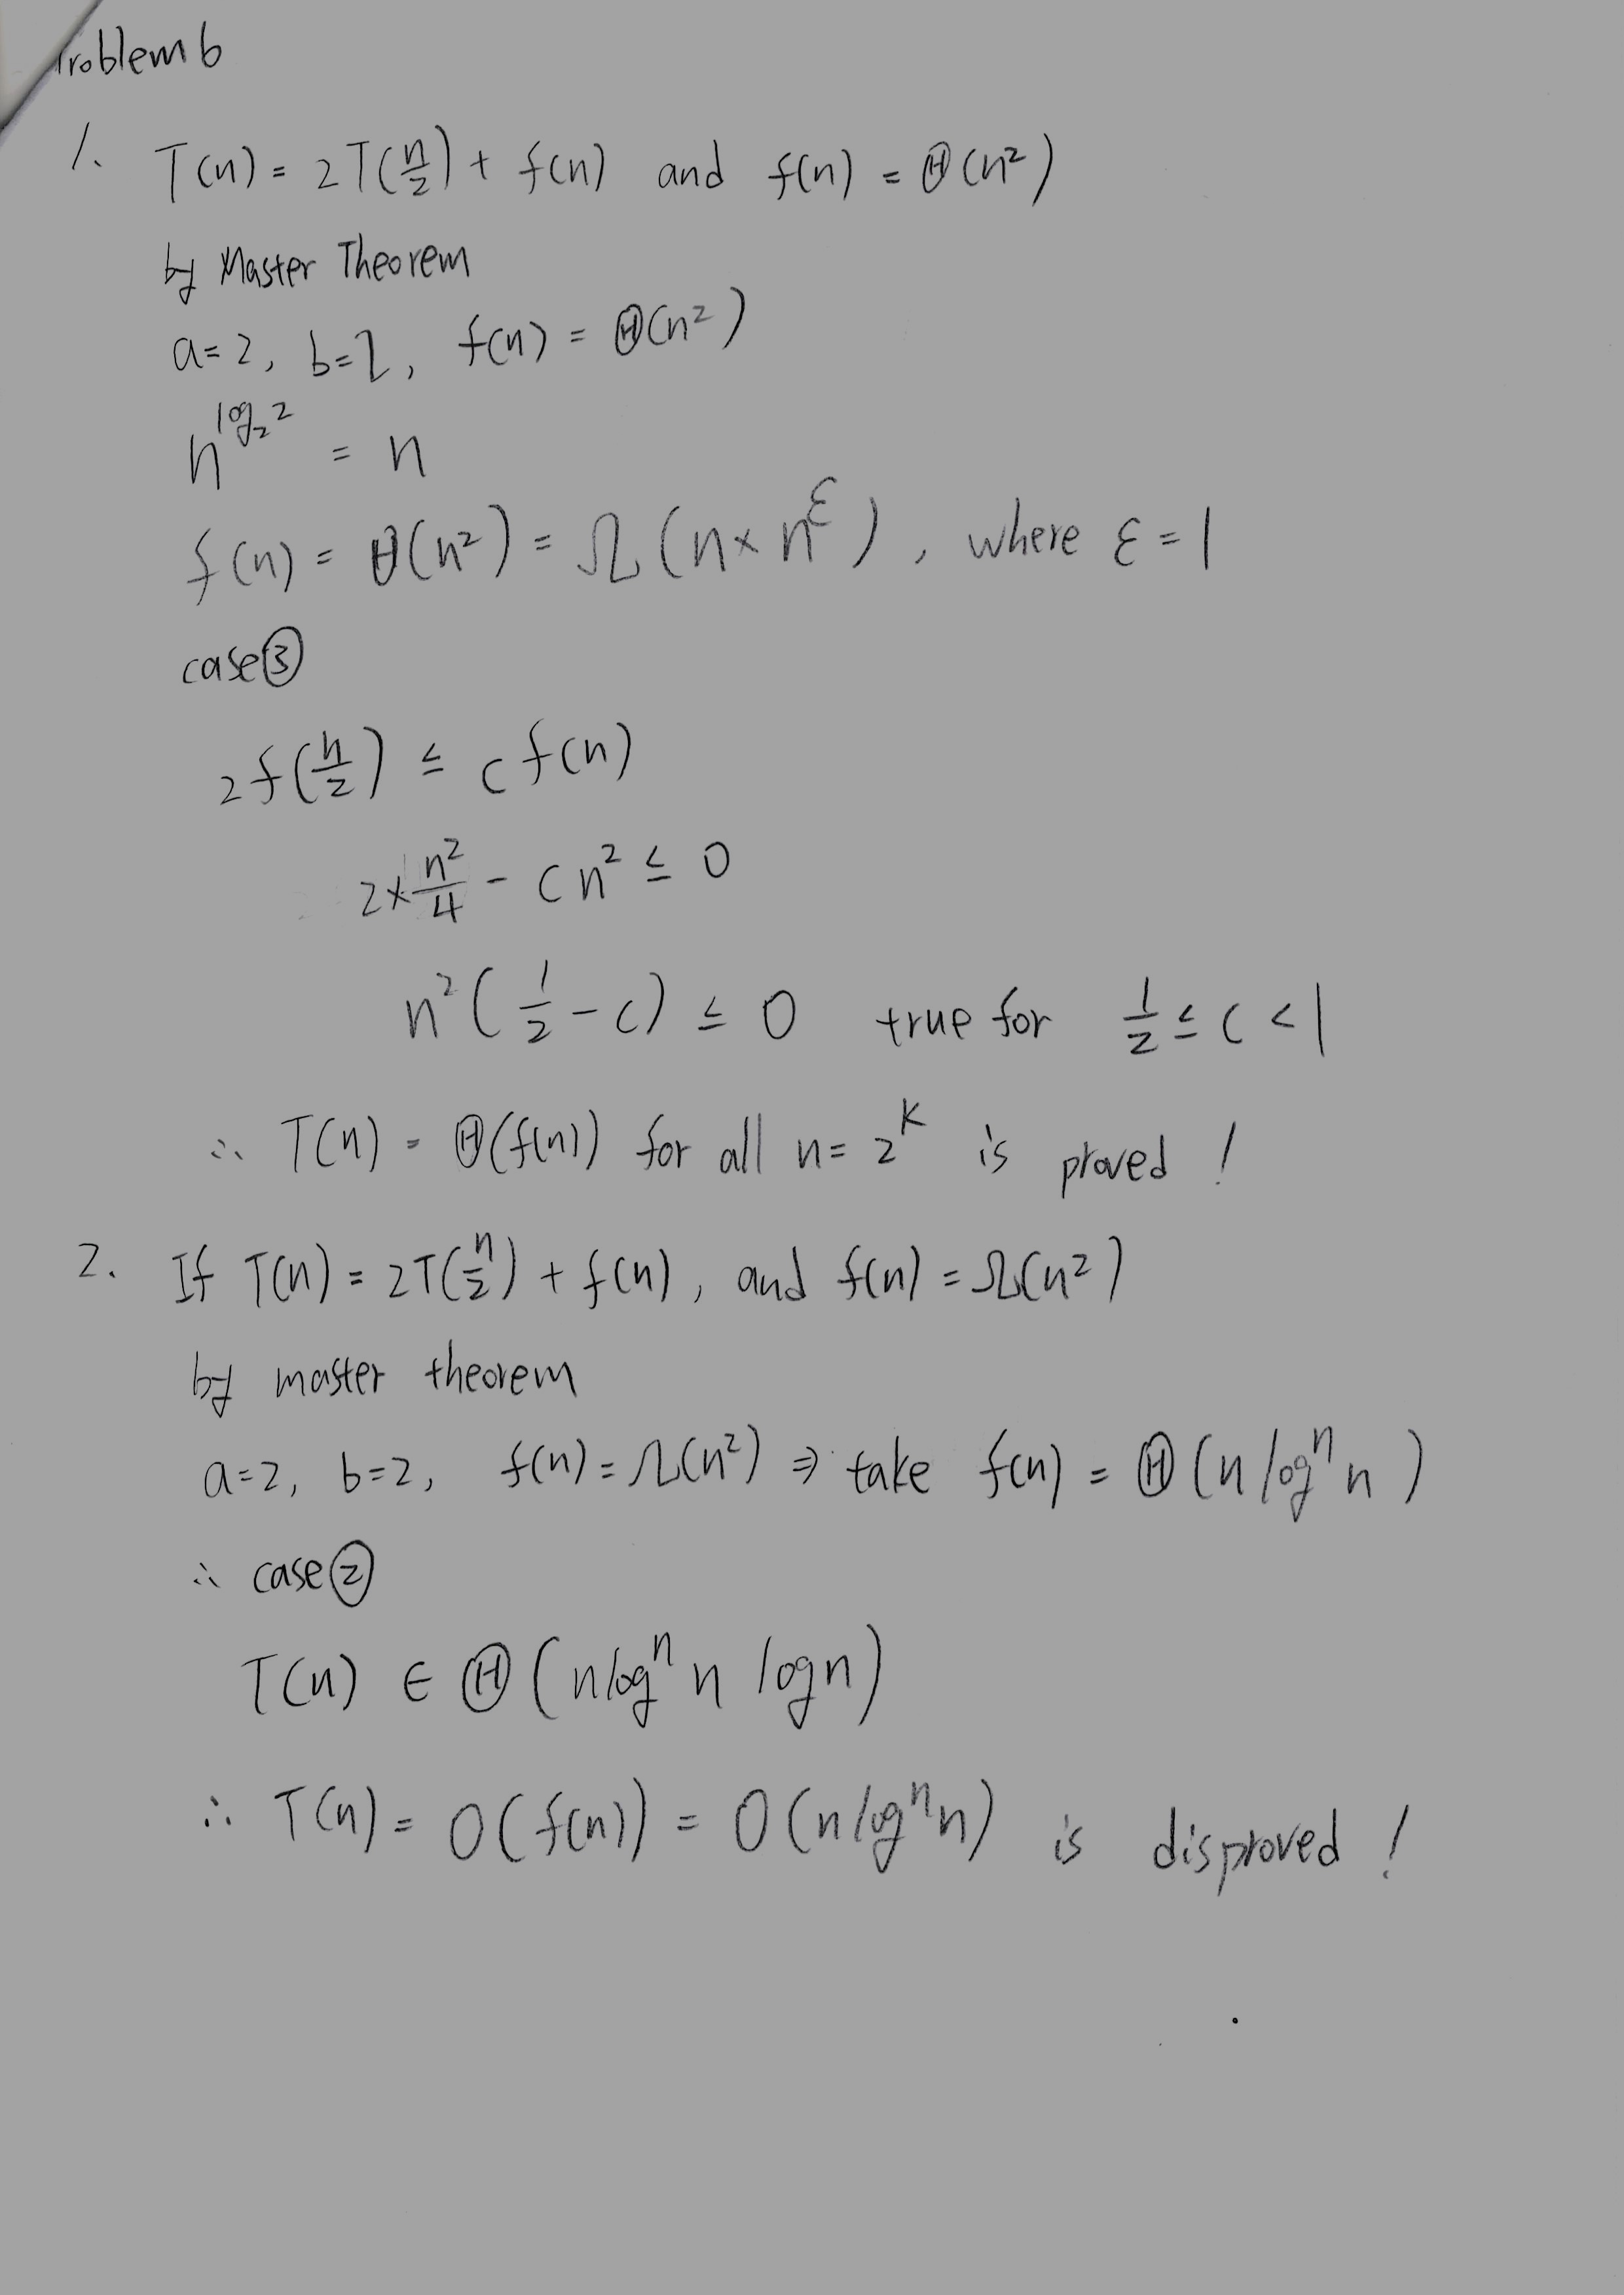 Problem 6
1. T(n) = 2T(n/2) + f(n) and f(n) = Θ(n²)
by Master Theorem
a=2, b=2, f(n) = Θ(n²)
n^(log₂2) = n
f(n) = Θ(n²) = Ω(n × n^ε), where ε = 1
case ③
2f(n/2) ≤ c f(n)
2 × n²/4 - cn² ≤ 0
n²(1/2 - c) ≤ 0 true for 1/2 ≤ c < 1
∴ T(n) = Θ(f(n)) for all n = 2^k is proved!
2. If T(n) = 2T(n/2) + f(n), and f(n) = Ω(n²)
by master theorem
a=2, b=2, f(n) = Ω(n²) ⇒ take f(n) = Θ(n logⁿ n)
∴ case ②
T(n) ∈ Θ(n logⁿ n log n)
∴ T(n) = O(f(n)) = O(n logⁿ n) is disproved!